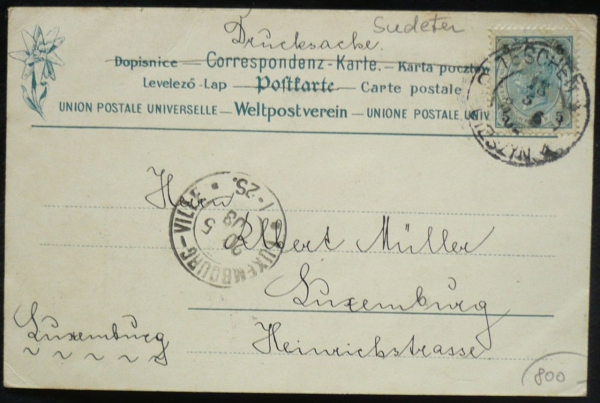 Sudeten
Drucksache.
Dopisnice – Correspondenz-Karte. – Karta poczto
Levelező-Lap – Postkarte – Carte postale
UNION POSTALE UNIVERSELLE – Weltpostverein – UNIONE POSTALE UNIV
TESCHEN
CIESZYN
LUXEMBOURG-VILLE
1-2S.
20
5
03
Herrn
Albert Müller
Luxemburg
Luxemburg
Heinrichstrasse
800